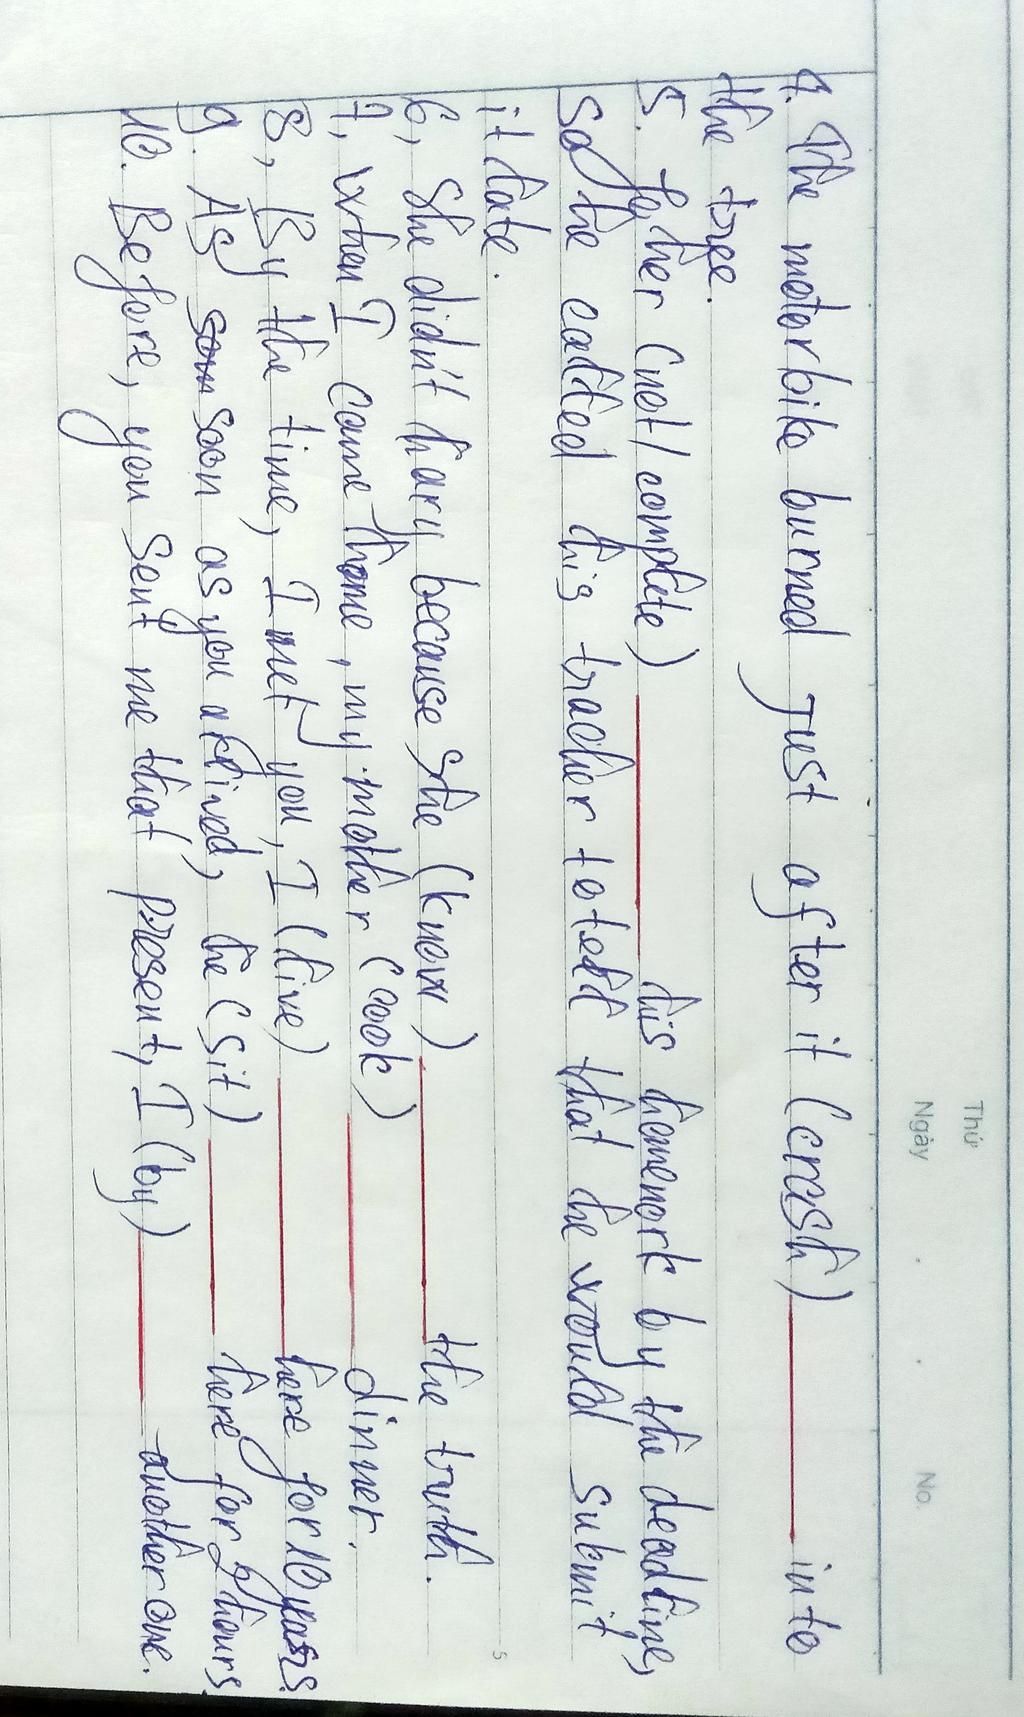 Thứ
Ngày
No.
4. The motorbike burned just after it (crash) ______ into
the tree.
5. Father (not/complete) ______ his homework by the deadline,
so he called his tracher to tell that he would submit
it late.
6, She didn't hary because she (know) ______ the truth.
7, when I came home, my mother (cook) ______ dinner.
8, By the time, I met you, I (live) ______ here for 10 years.
9. As soon as you arrived, he (sit) ______ here for 2 hours.
10. Before, you sent me that present, I (by) ______ another one.
5